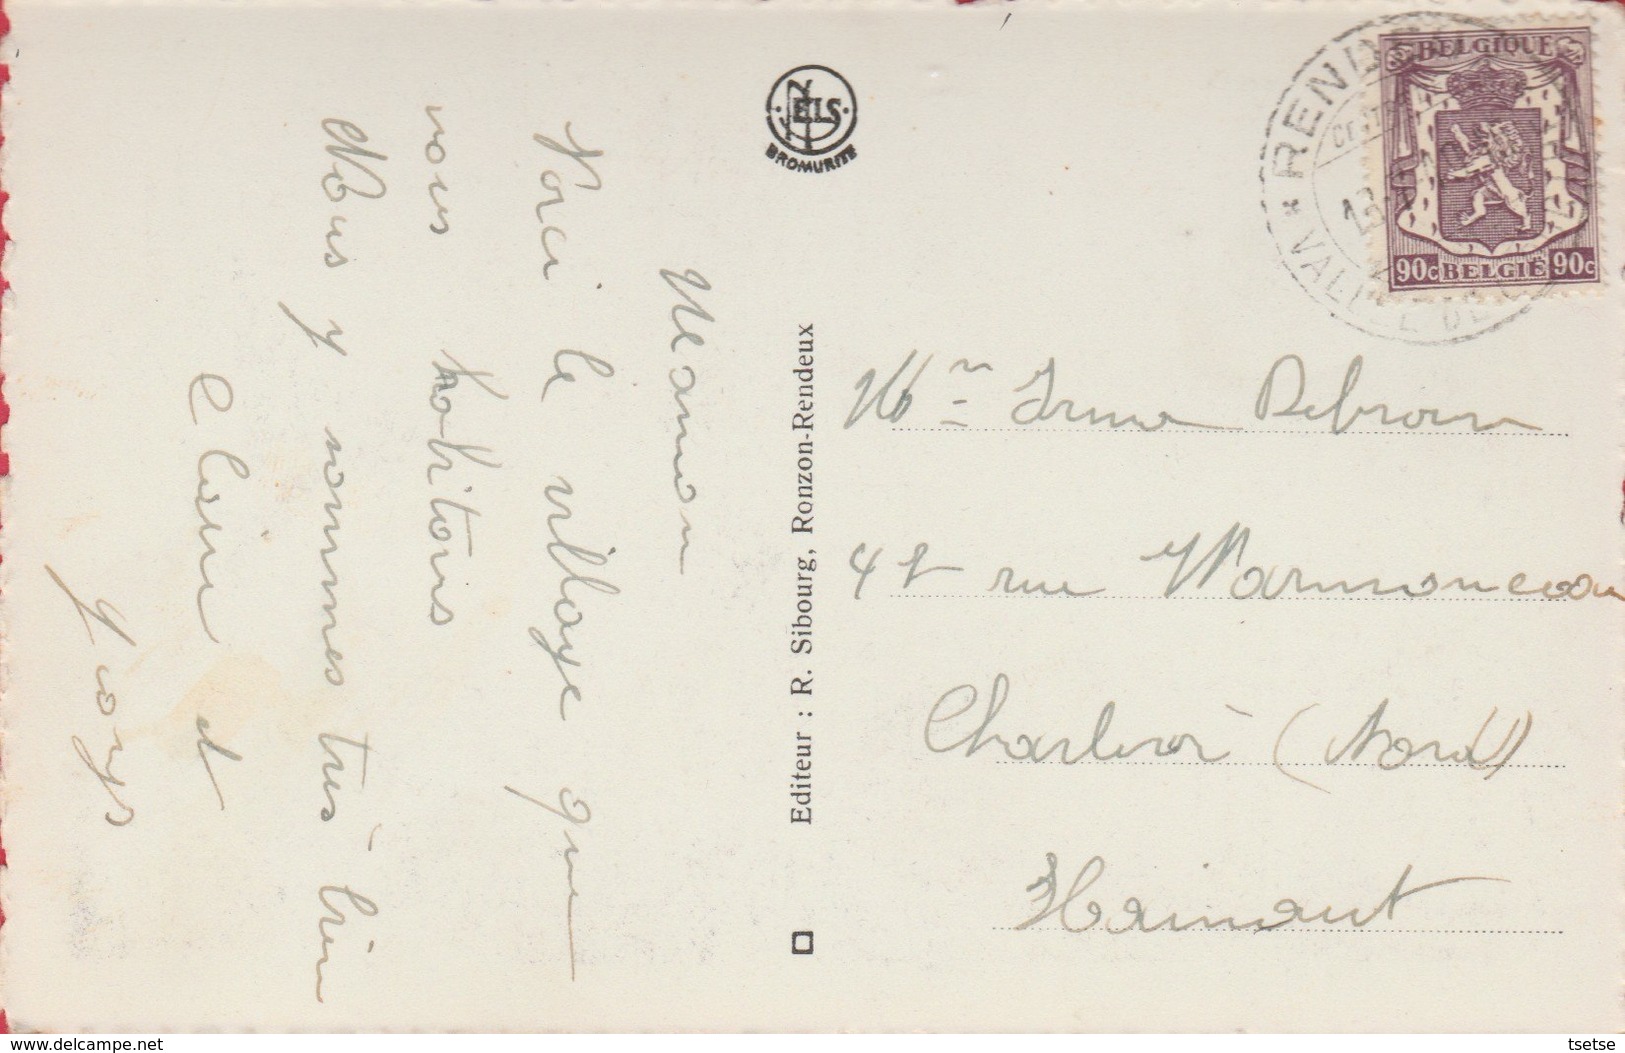 Maman
Voici le village que
nous habitons
Nous y sommes très bien
et
Guys
NELS
BROMURITE
Editeur : R. Sibourg, Ronzon-Rendeux
BELGIQUE
90c BELGIË 90c
* VALLÉE DE
Mme Irma Debroux
rue Marmonceau
Charleroi (Nord)
Hainaut
www.delcampe.net
tsetse